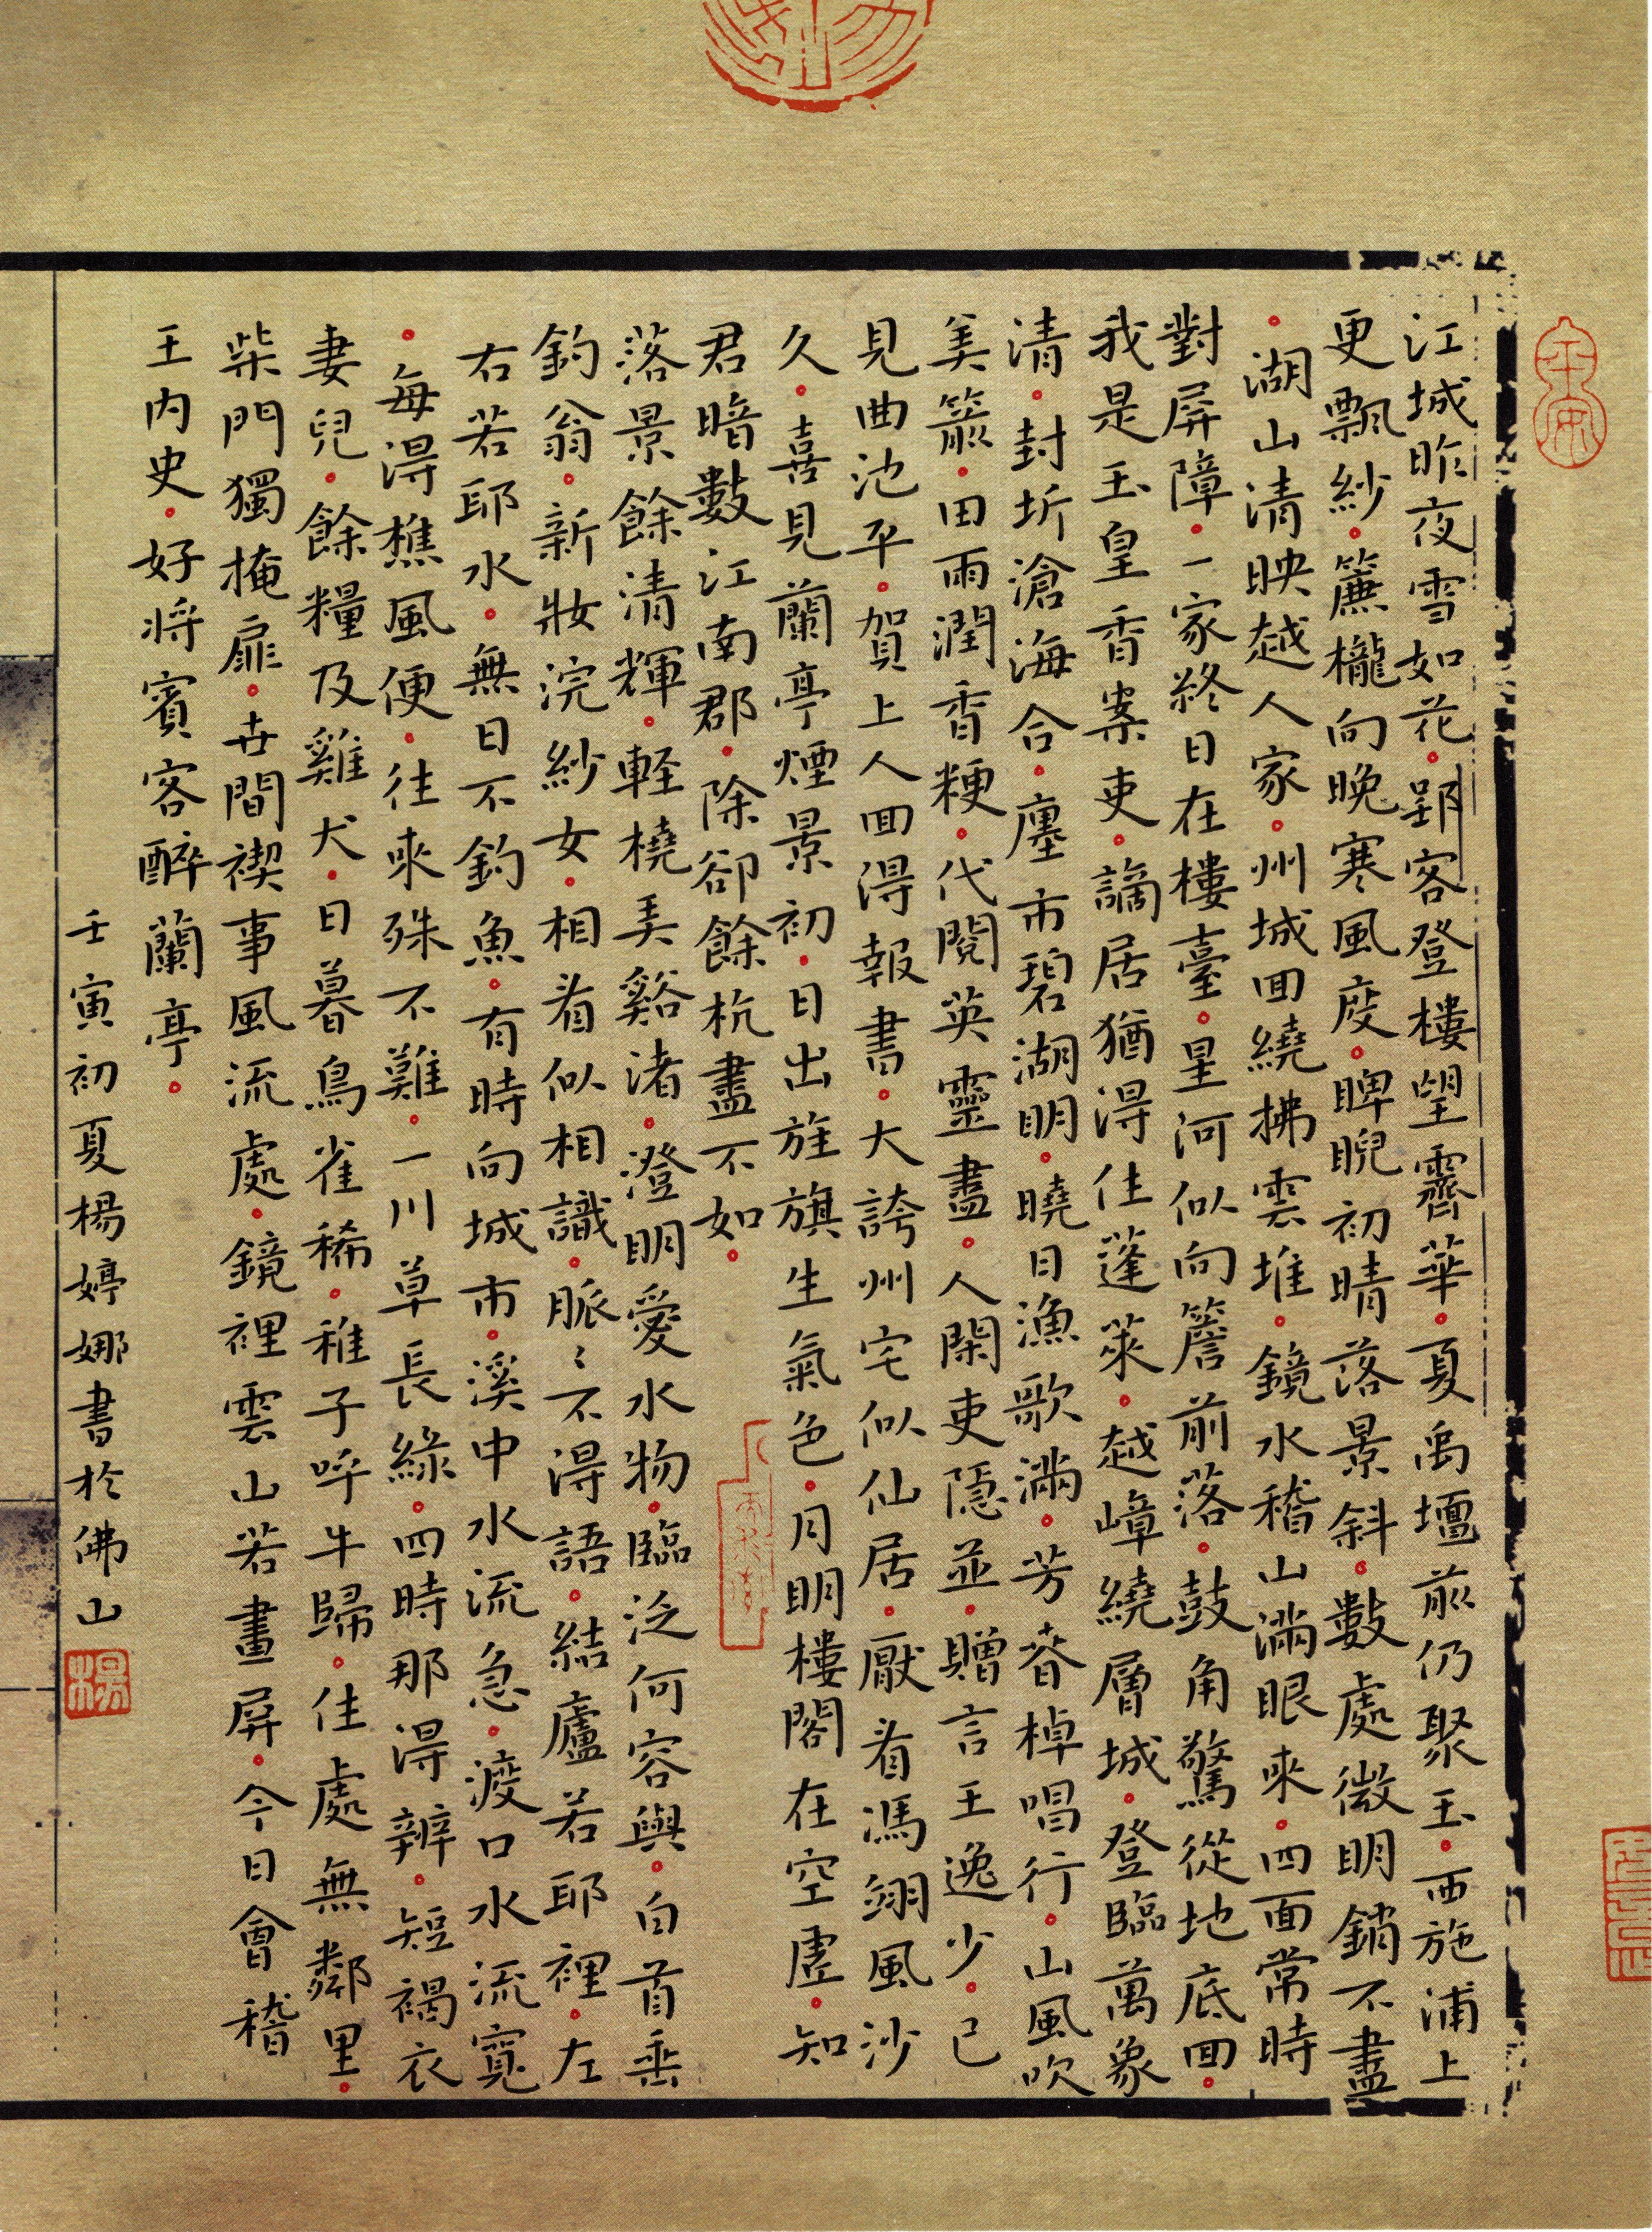 江城昨夜雪如花。郢客登樓望霽華。夏禹壇前仍聚玉。西施浦上
更飄紗。簾櫳向晚寒風度。睥睨初晴落景斜。數處微明銷不盡
。湖山清映越人家。州城回繞拂雲堆。鏡水稽山滿眼來。四面常時
對屏障。一家終日在樓臺。星河似向簷前落。鼓角驚從地底回。
我是玉皇香案吏。謫居猶得住蓬萊。越嶂繞層城。登臨萬象
清。封圻滄海合。廛市碧湖明。曉日漁歌滿。芳春棹唱行。山風吹
美箭。田雨潤香粳。代閱英靈盡。人閑吏隱並。贈言王逸少。已
見曲池平。賀上人回得報書。大誇州宅似仙居。厭看馮翊風沙
久。喜見蘭亭煙景初。日出旌旗生氣色。月明樓閣在空虛。知
君暗數江南郡。除卻餘杭盡不如。
落景餘清輝。輕橈弄谿渚。澄明愛水物。臨泛何容與。白首垂
釣翁。新妝浣紗女。相看似相識。脈〻不得語。結廬若耶裡。左
右若耶水。無日不釣魚。有時向城市。溪中水流急。渡口水流寬
。每得樵風便。往來殊不難。一川草長綠。四時那得辨。短褐衣
妻兒。餘糧及雞犬。日暮鳥雀稀。稚子呼牛歸。住處無鄰里。
柴門獨掩扉。世間禊事風流處。鏡裡雲山若畫屏。今日會稽
王內史。好將賓客醉蘭亭。
壬寅初夏楊婷娜書於佛山
楊